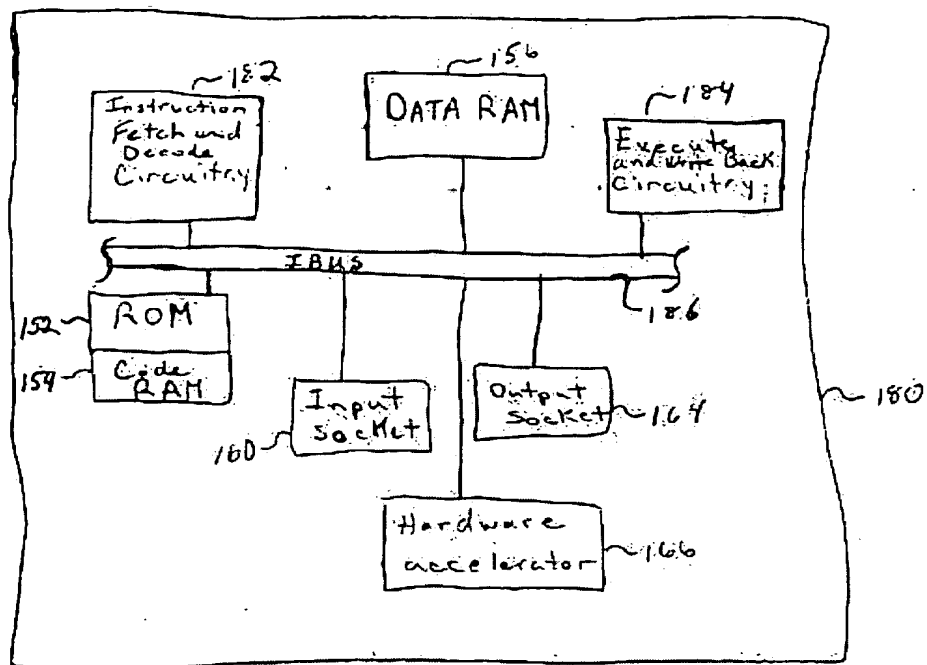 182
Instruction
Fetch and
Decode
Circuitry
156
DATA RAM
184
Execute
and Write Back
Circuitry
IBUS
186
152
ROM
154
Code
RAM
Input
Socket
160
Output
Socket
164
180
Hardware
accelerator
166